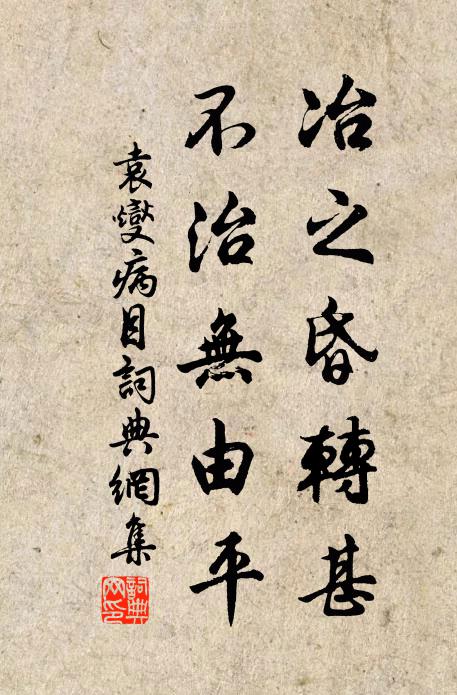 冶之昏轉甚
不治無由平
袁燮病目詞典網集
詞典
网印